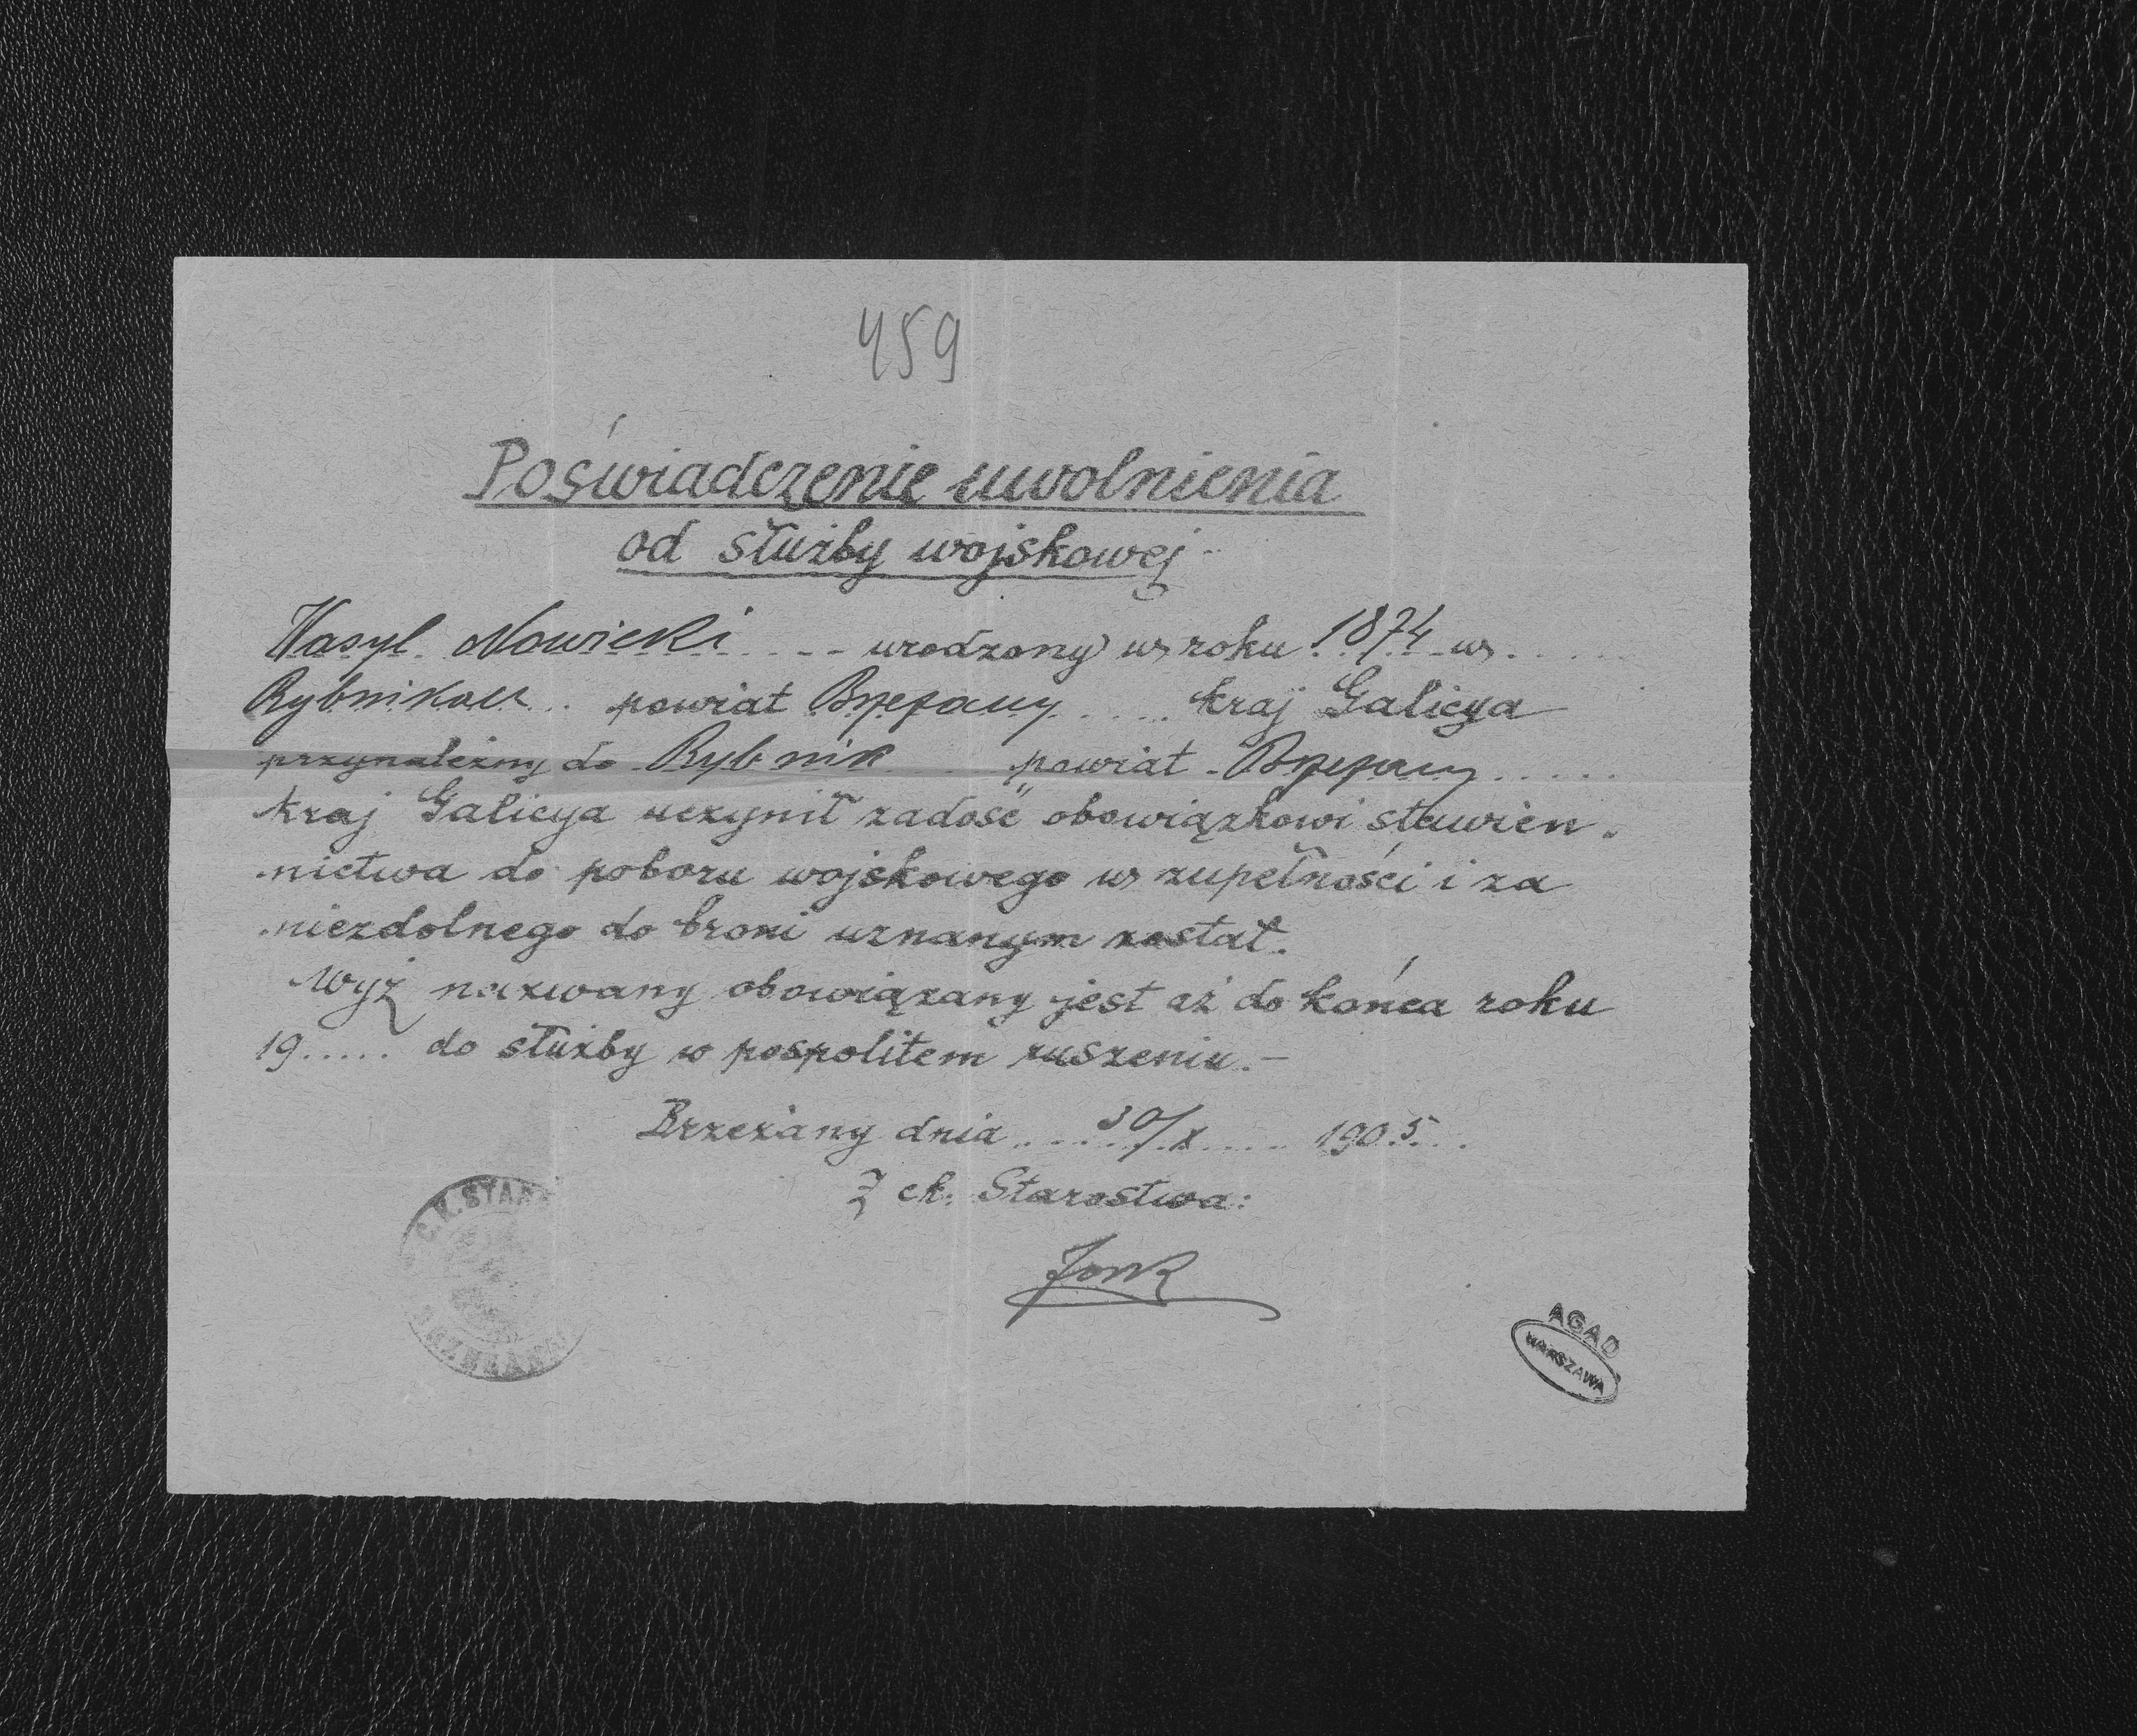 459
Poświadczenie uwolnienia
od służby wojskowej
Wasyl Nowicki urodzony w roku 1874 w
Rybnikach powiat Brzeżany kraj Galicya
przynależny do Rybnik powiat Brzeżany
kraj Galicya uczynił zadość obowiązkowi stawien-
nictwa do poboru wojskowego w zupełności i za
niezdolnego do broni uznanym został.
Wyż nazwany obowiązany jest aż do końca roku
19..... do służby w pospolitem ruszeniu.-
Brzeżany dnia 30/X 1905
Z ck. Starostwa:
C.K. STAR
AGAD
WARSZAWA